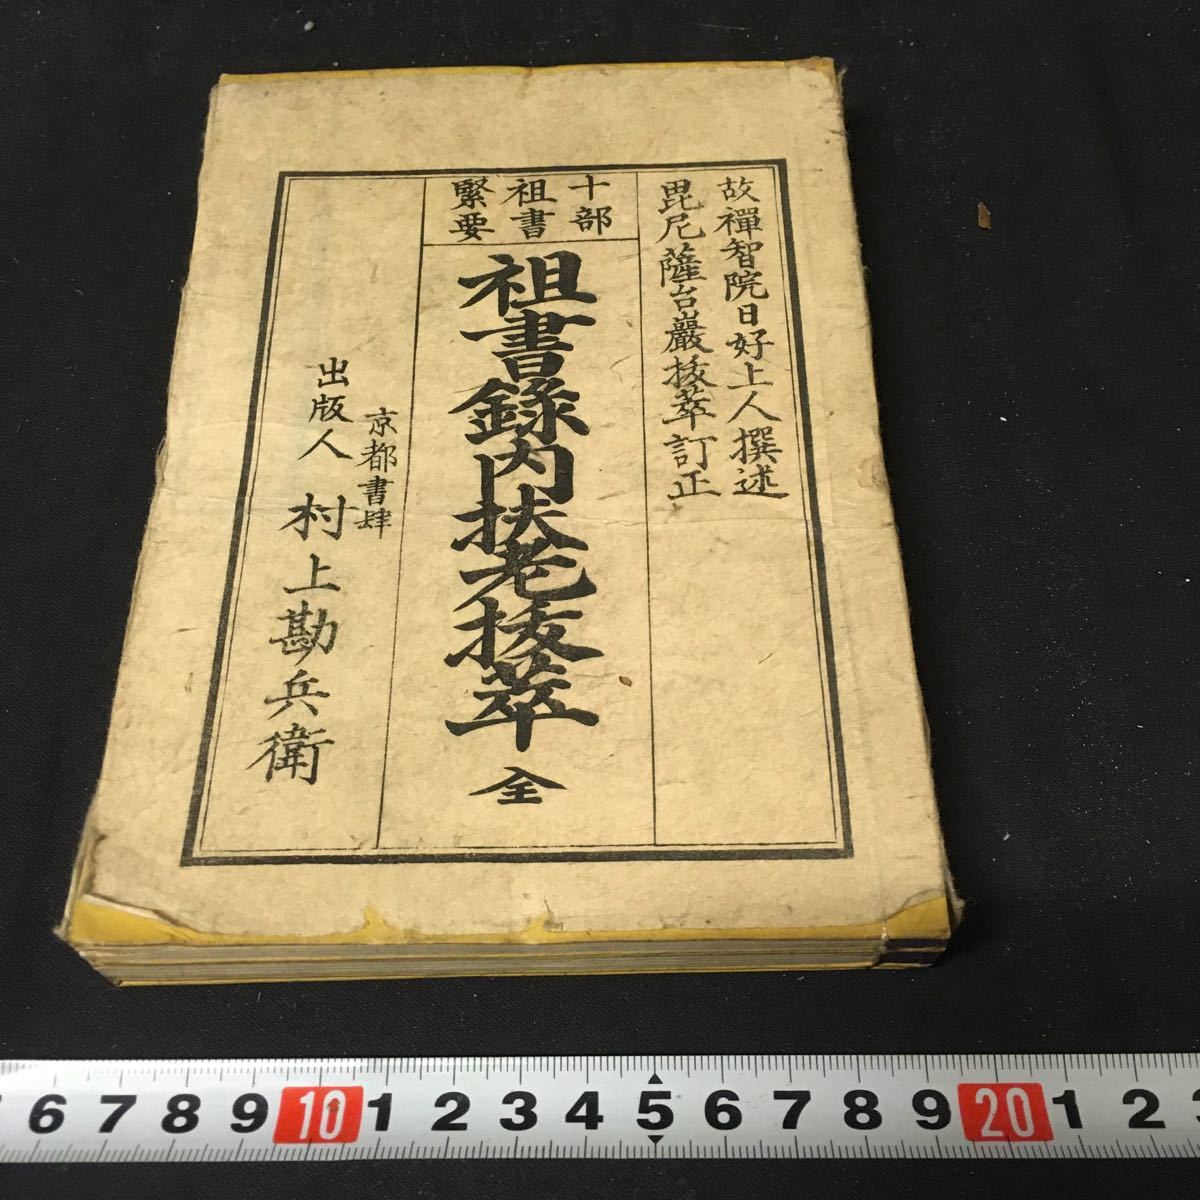 故禪智院日好上人撰述
毘尼薩台巖拔萃訂正
十部
祖書
緊要
祖書錄内扶老拔萃 全
京都書肆
出版人 村上勘兵衛
6 7 8 9 10 1 2 3 4 5 6 7 8 9 20 1 2 3